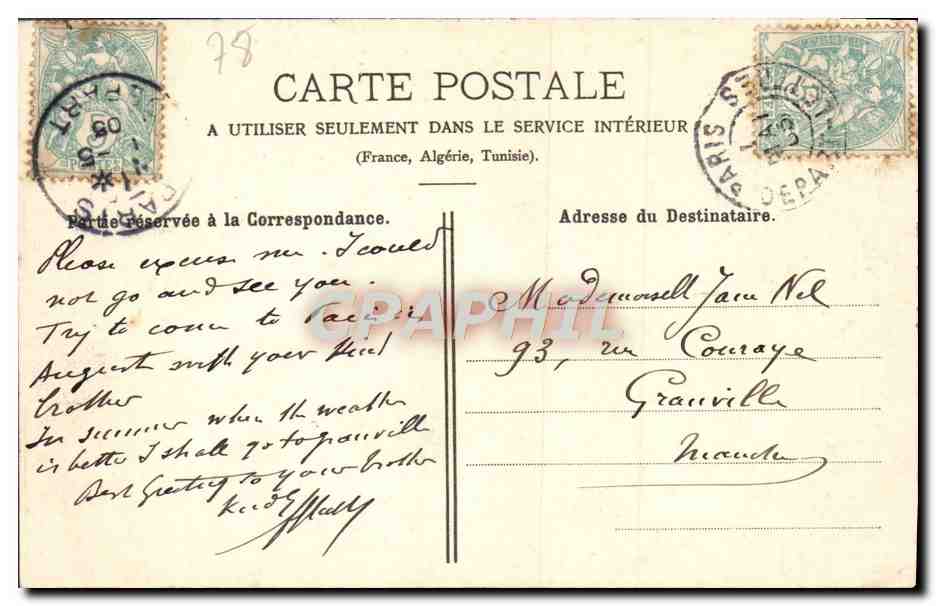 78
CARTE POSTALE
A UTILISER SEULEMENT DANS LE SERVICE INTÉRIEUR
(France, Algérie, Tunisie).
Partie réservée à la Correspondance.
Please excuse me. I could
not go and see you.
Try to come to Paris in
August with your kind
brother
In summer when the weather
is better I shall go to granville
Best Greeting to your brother
Kindly
Adresse du Destinataire.
Mademoiselle Jane Nel
93, rue Couraye
Granville
Manche
PARIS
DEPART
PARIS
DEPART
POSTES
CPARHIL